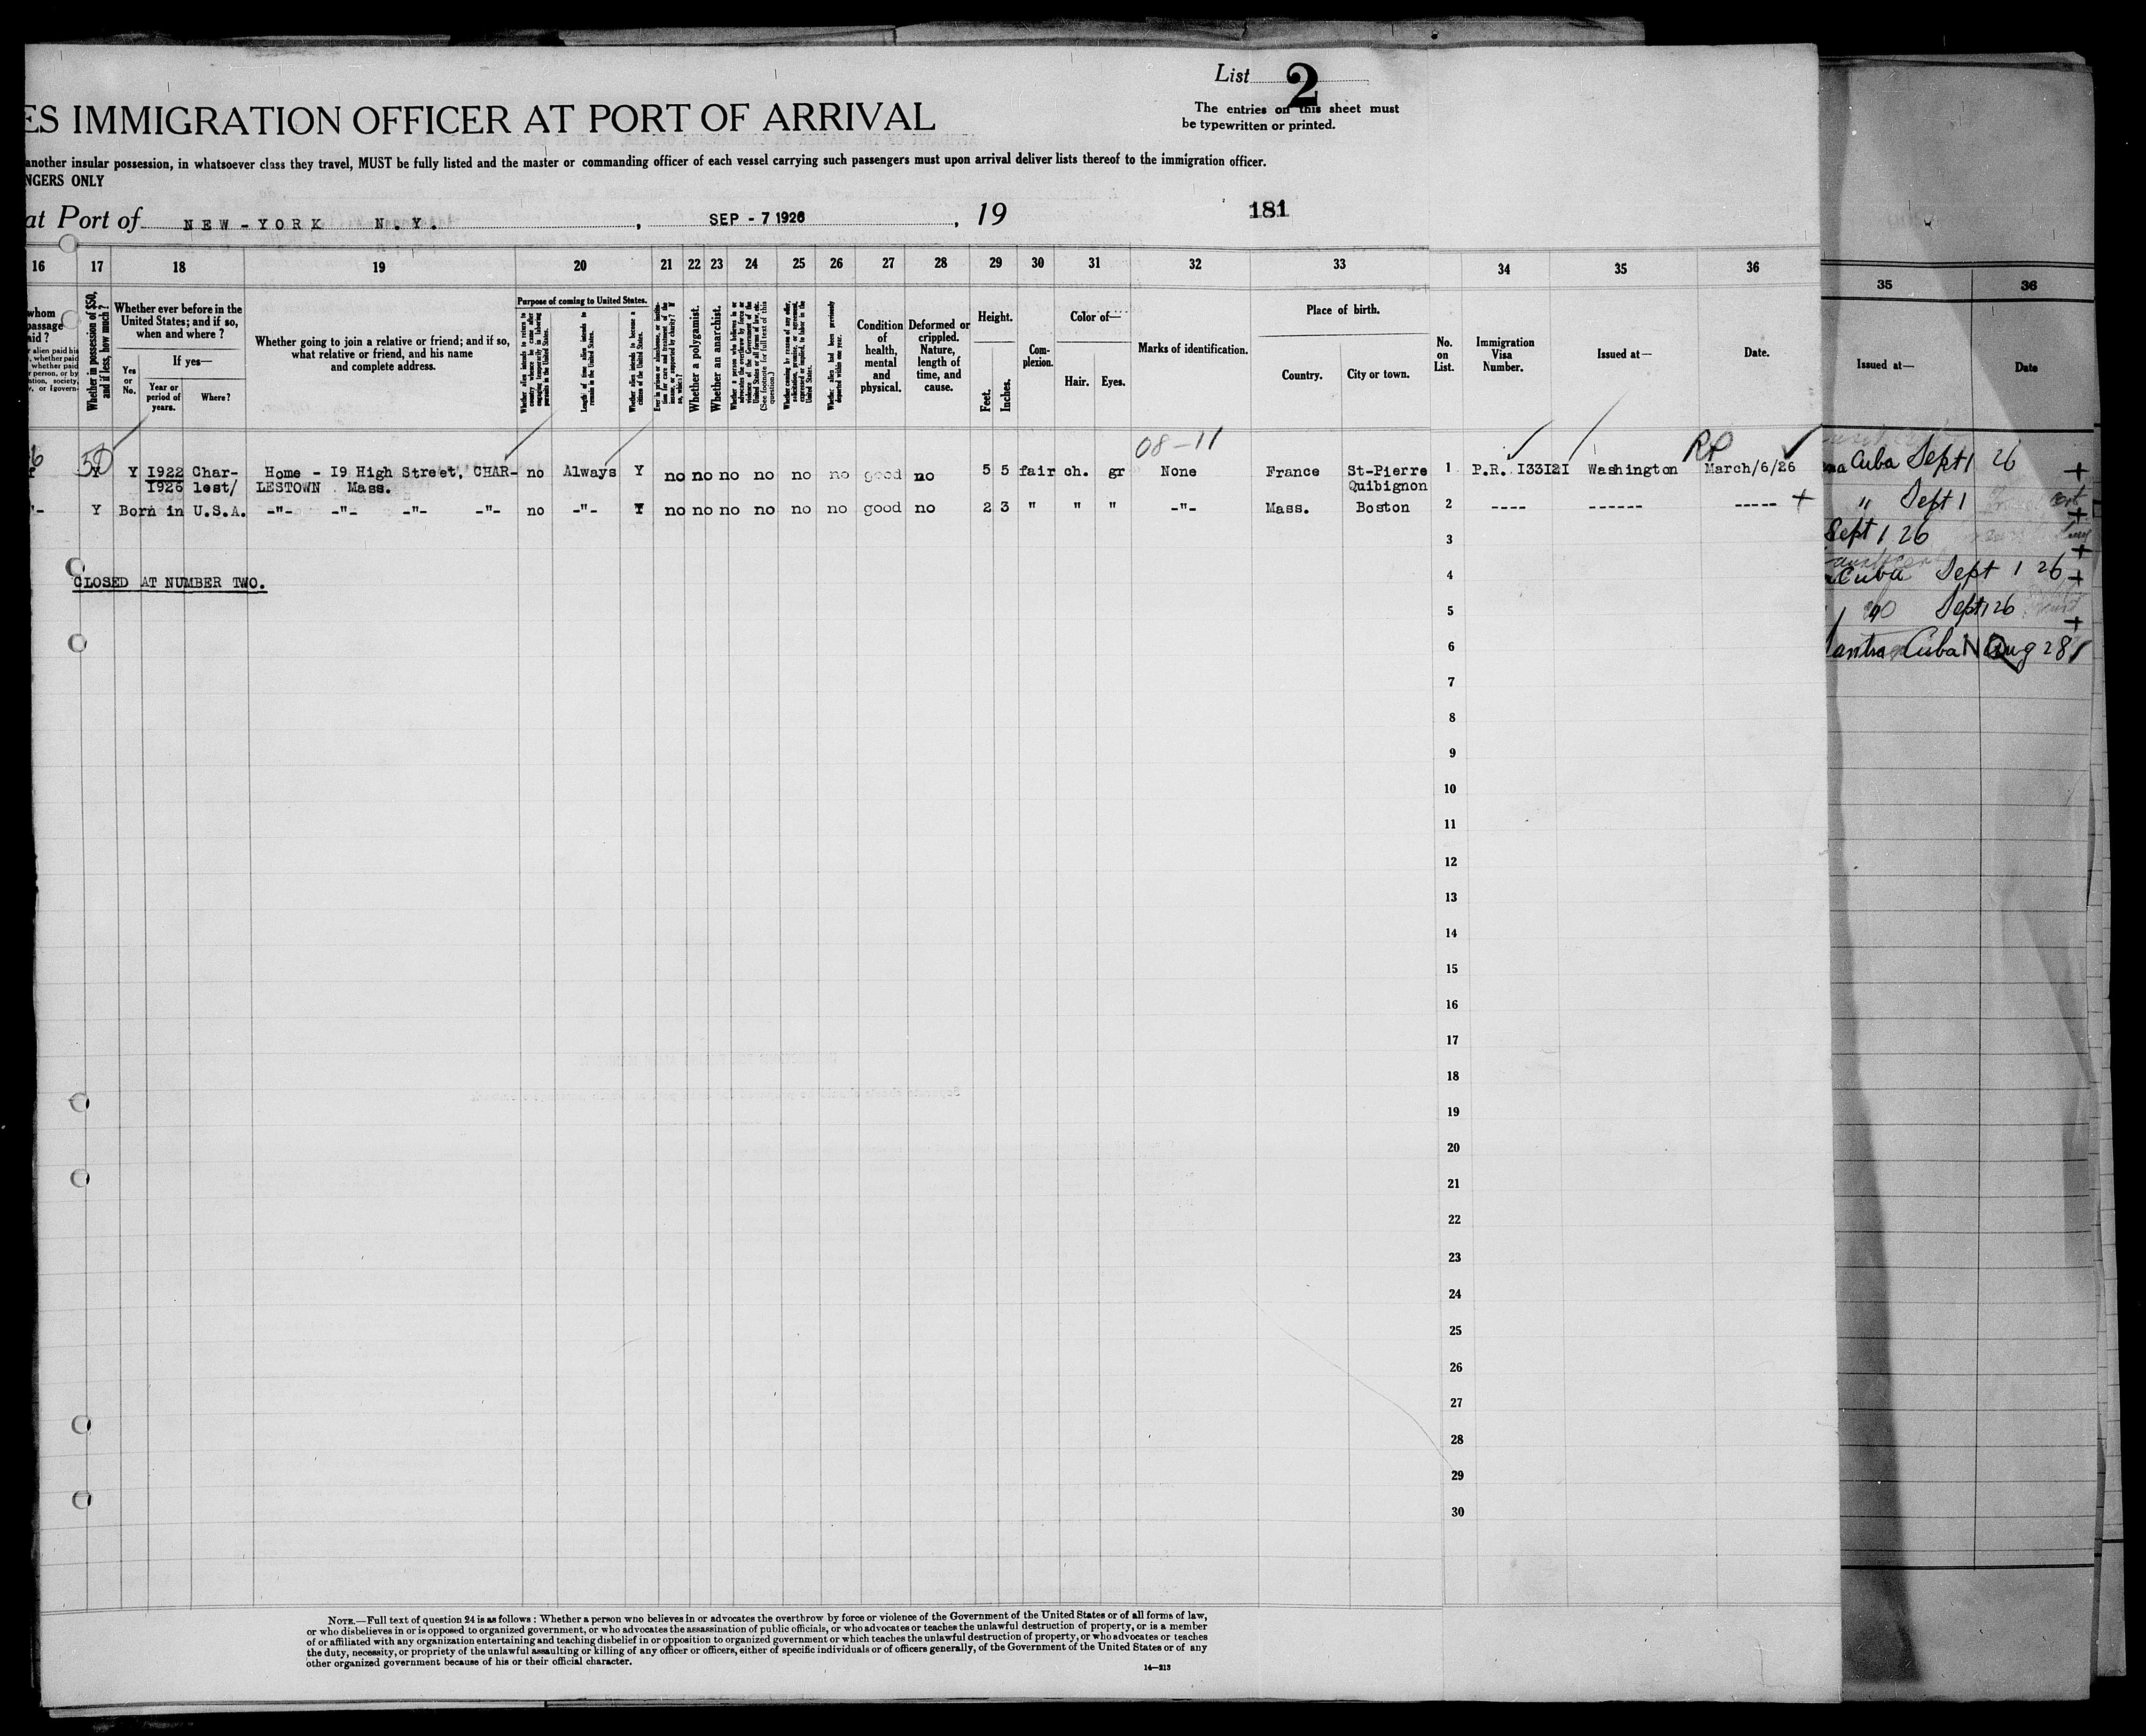 List 2
The entries on this sheet must
be typewritten or printed.
ES IMMIGRATION OFFICER AT PORT OF ARRIVAL
another insular possession, in whatsoever class they travel, MUST be fully listed and the master or commanding officer of each vessel carrying such passengers must upon arrival deliver lists thereof to the immigration officer.
NGERS ONLY
at Port of NEW-YORK N.Y. , SEP - 7 1926 , 19
181
16 17 18 19 20 21 22 23 24 25 26 27 28 29 30 31 32 33 34 35 36
35 36
whom
passage
aid?
Whether in possession of $50, and if less, how much?
Whether ever before in the
United States; and if so,
when and where?
If yes—
Yes
or
No.
Year or
period of
years.
Where?
Whether going to join a relative or friend; and if so,
what relative or friend, and his name
and complete address.
Purpose of coming to United States.
Length of time alien intends to remain in the United States.
Whether alien intends to become a citizen of the United States.
Whether a polygamist.
Whether an anarchist.
Condition
of
health,
mental
and
physical.
Deformed or
crippled.
Nature,
length of
time, and
cause.
Height.
Feet.
Inches.
Com-
plexion.
Color of—
Hair.
Eyes.
Marks of identification.
Place of birth.
Country.
City or town.
No.
on
List.
Immigration
Visa
Number.
Issued at—
Date.
Issued at—
Date
50
08-11
RP
Y Y 1922 Char- Home - I9 High Street, CHAR- no Always Y no no no no no no good no 5 5 fair ch. gr None France St-Pierre 1 P.R. I33I2I Washington March/6/26
1926 lest/ LESTOWN Mass. Quibignon
-"- Y Born in U.S.A. -"- -"- -"- -"- no -"- Y no no no no no no good no 2 3 " " " -"- Mass. Boston 2 ---- ------ ----- +
CLOSED AT NUMBER TWO.
3
4
5
6
7
8
9
10
11
12
13
14
15
16
17
18
19
20
21
22
23
24
25
26
27
28
29
30
Cuba Sept 1 26 +
" Sept 1 +
Sept 1 26 +
Cuba Sept 1 26 +
Sept 1 26 +
Cuba Aug 28
NOTE.—Full text of question 24 is as follows: Whether a person who believes in or advocates the overthrow by force or violence of the Government of the United States or of all forms of law,
or who disbelieves in or is opposed to organized government, or who advocates the assassination of public officials, or who advocates or teaches the unlawful destruction of property, or is a member
of or affiliated with any organization entertaining and teaching disbelief in or opposition to organized government or which teaches the unlawful destruction of property, or who advocates or teaches
the duty, necessity, or propriety of the unlawful assaulting or killing of any officer or officers, either of specific individuals or of officers generally, of the Government of the United States or of any
other organized government because of his or their official character.
14—213